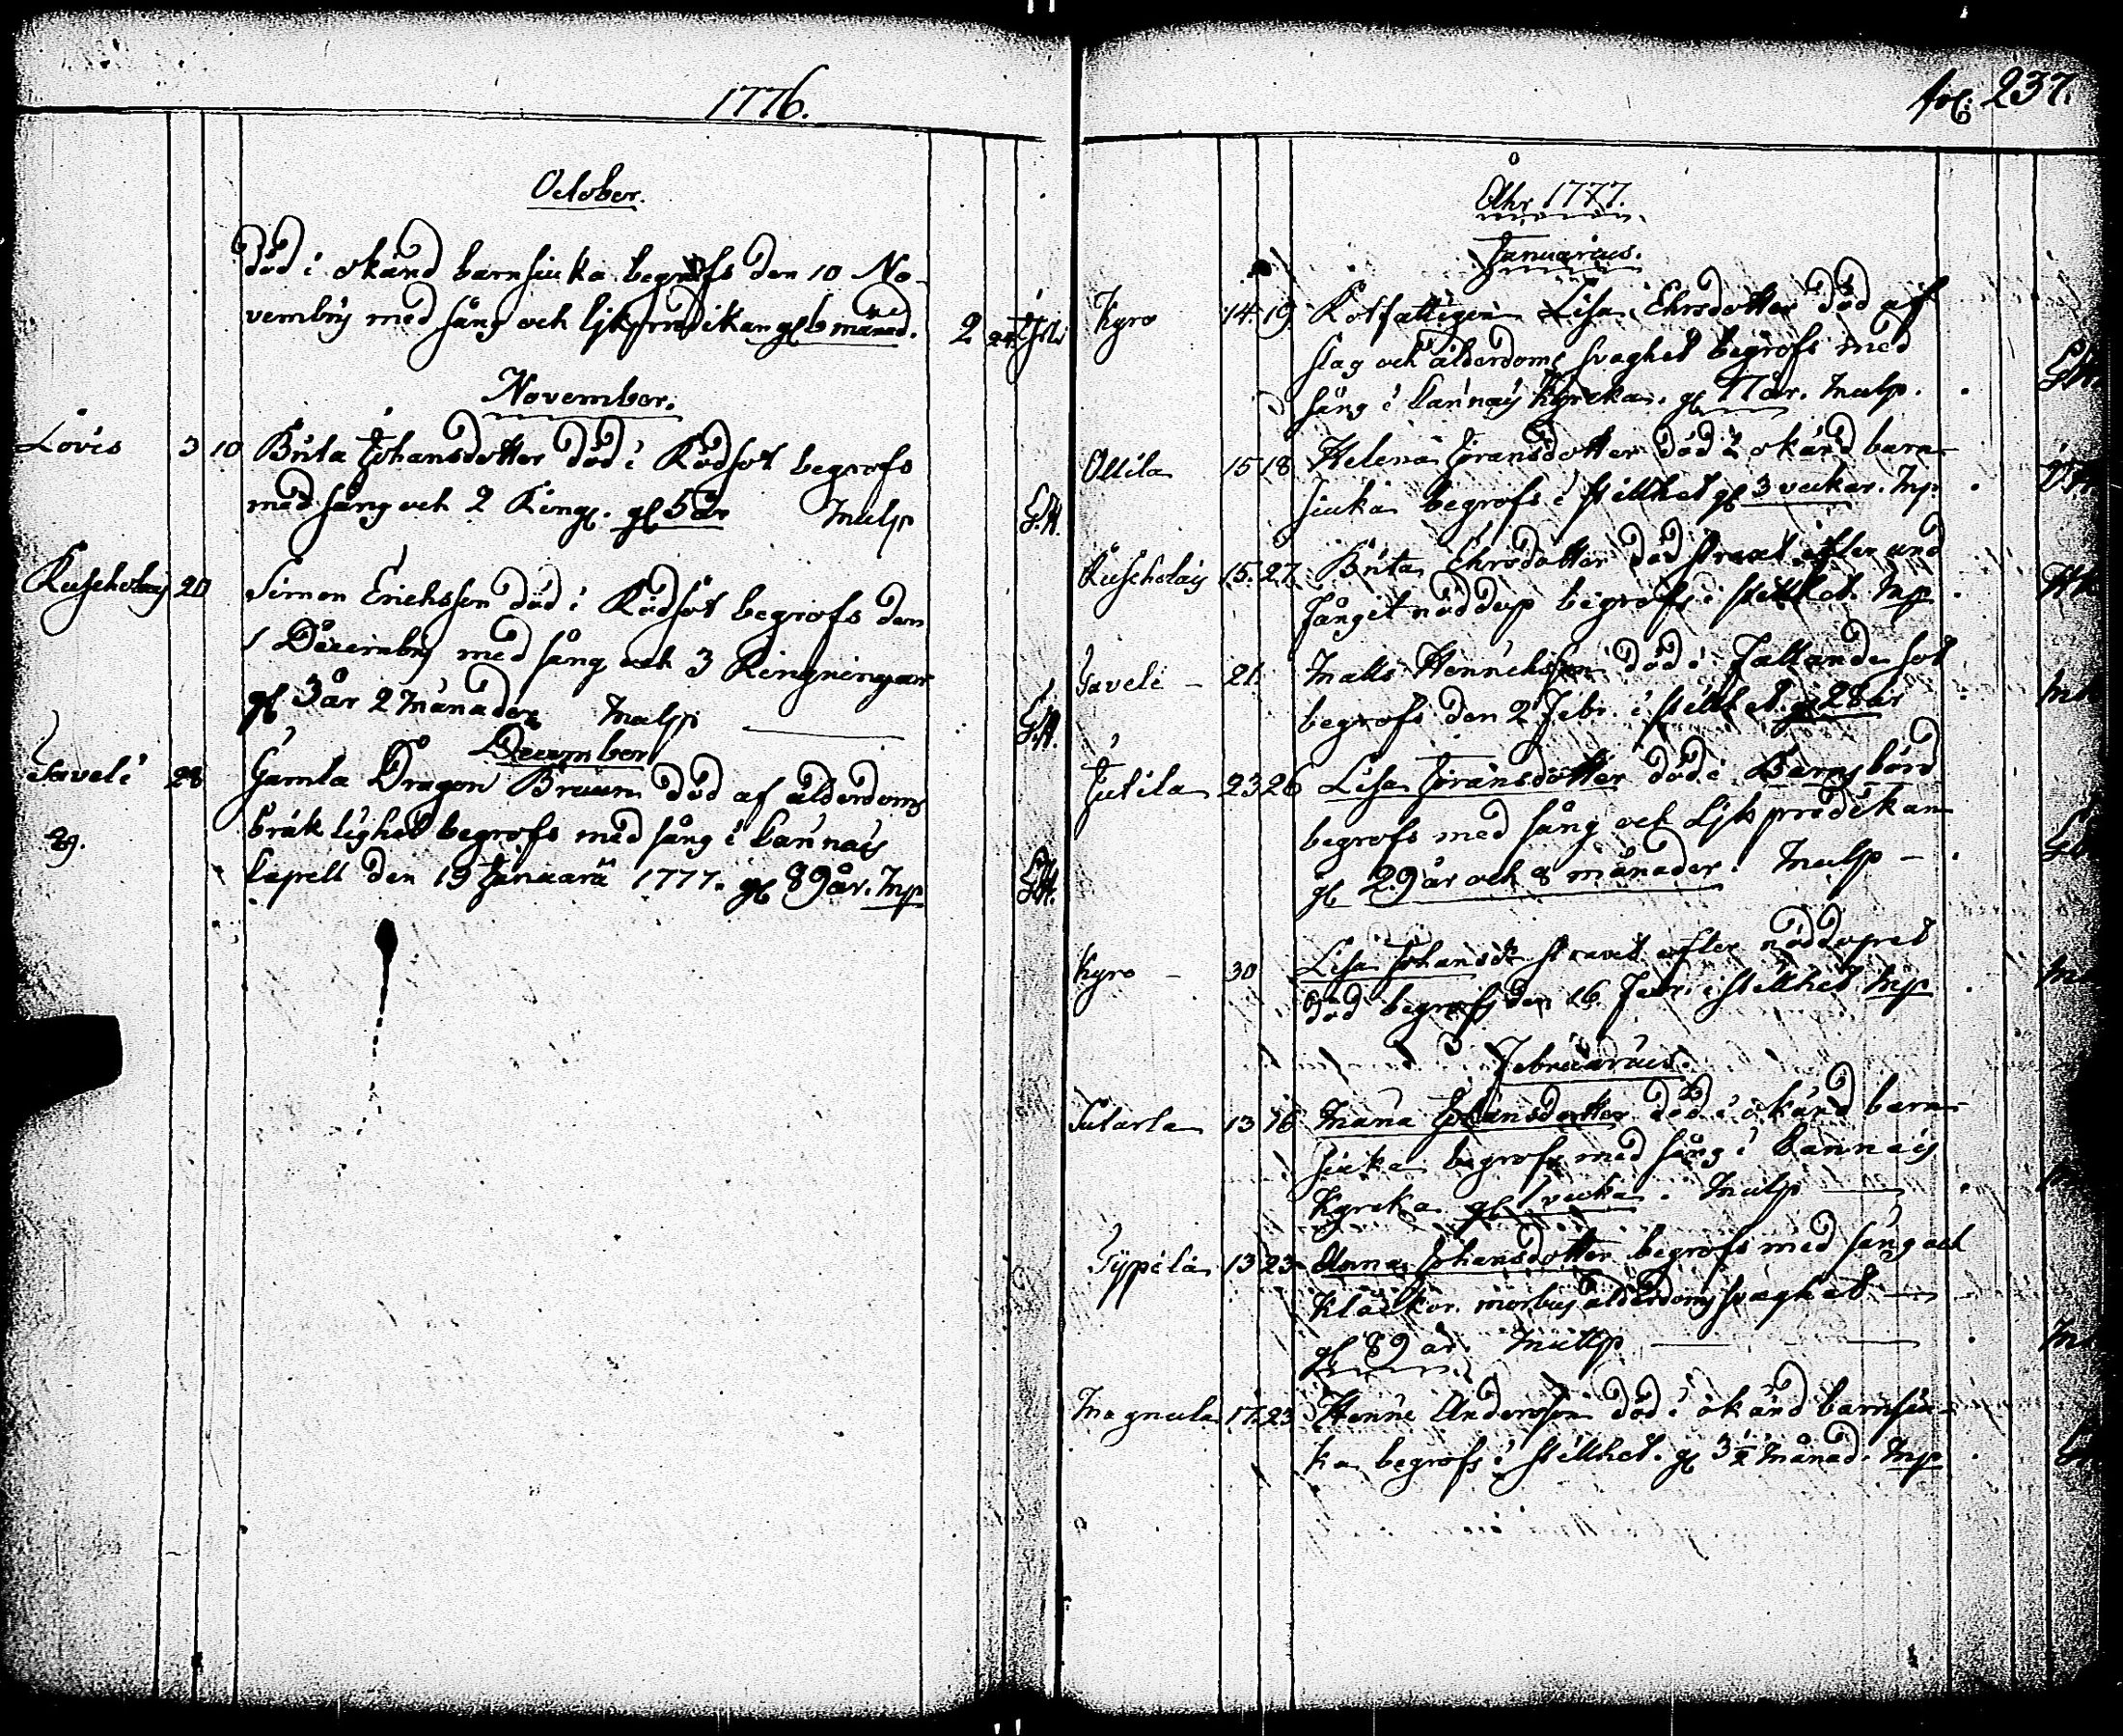 1776.
October.
död i okänd barnsiuka begrofs den 10 No-
vembris med sång och Ljkpredikan gl 6 månad. 2 24
November.
Lovis 3 10 Brita Johansdotter död i Rödsot begrofs
med sång och 2 Ring. gl 5 år Malp G.H.
Kuscholays 20 Simon Erichsson död i Rödsot begrofs den
1 Decembris med sång och 3 Ringningar
gl 3 år 2 Månader Malp G.H.
December
Taveli 28 Gamla Dragon Bruun död af ålderdoms
29. bräklighet begrofs med sång i Cannais
Capell den 19 Januarii 1777. gl 89 år. Mp G.H.
fol. 237.
Åhr 1777.
Januarius.
Kyro 14 19 Rotfattigen Lisa Ehrsdotter död af
slag och ålderdoms svaghet begrofs med
sång i Cannais Kyrka. gl 77 år. Malp.
Ollila 15 18 Helena Jöransdotter död i okänd barn-
siuka begrofs i stillhet gl 3 veckor. Mp.
Kuscholays 15. 27. Brita Ehrsdotter död straxt efter und
fångit nöddop begrofs i stillhet. Mp.
Taveli – 21. Matts Hennichsson död i Fallande sot
begrofs den 2 Febr. i stillhet. gl 28 år
Jutila 23 26 Lisa Jöransdotter död i Barnsbörd
begrofs med sång och Ljkspredikan
gl 29 år och 8 månader. Malp –
Kyro – 30 Lisa Johansdr straxt efter nöddopet
död begrofs den 16 Febr. i stillhet Mp
Februarius.
13 16 Maria Johansdotter död i okänd barn-
siuka begrofs med sång i Cannais
Kyrka gl 1 vecka. Malp
Typpilä 13 23 Anna Johansdotter begrofs med sång och
Klåckor. morbus ålderdoms svaghet
gl 89 år. Malp
Magnula 17. 23 Henric Andersson död i okänd barnsiu-
ka begrofs i stillhet. gl 3 1/2 Månad. Mp